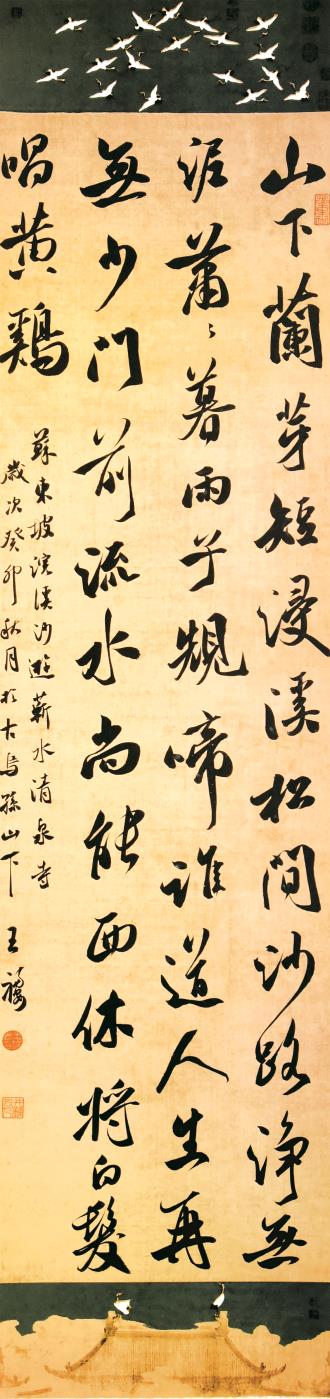 山下蘭芽短浸溪松間沙路淨無
泥蕭〻暮雨子規啼誰道人生再
無少門前流水尚能西休將白髮
唱黄鷄
蘇東坡浣溪沙遊蘄水清泉寺
歲次癸卯秋月於古烏孫山下 王